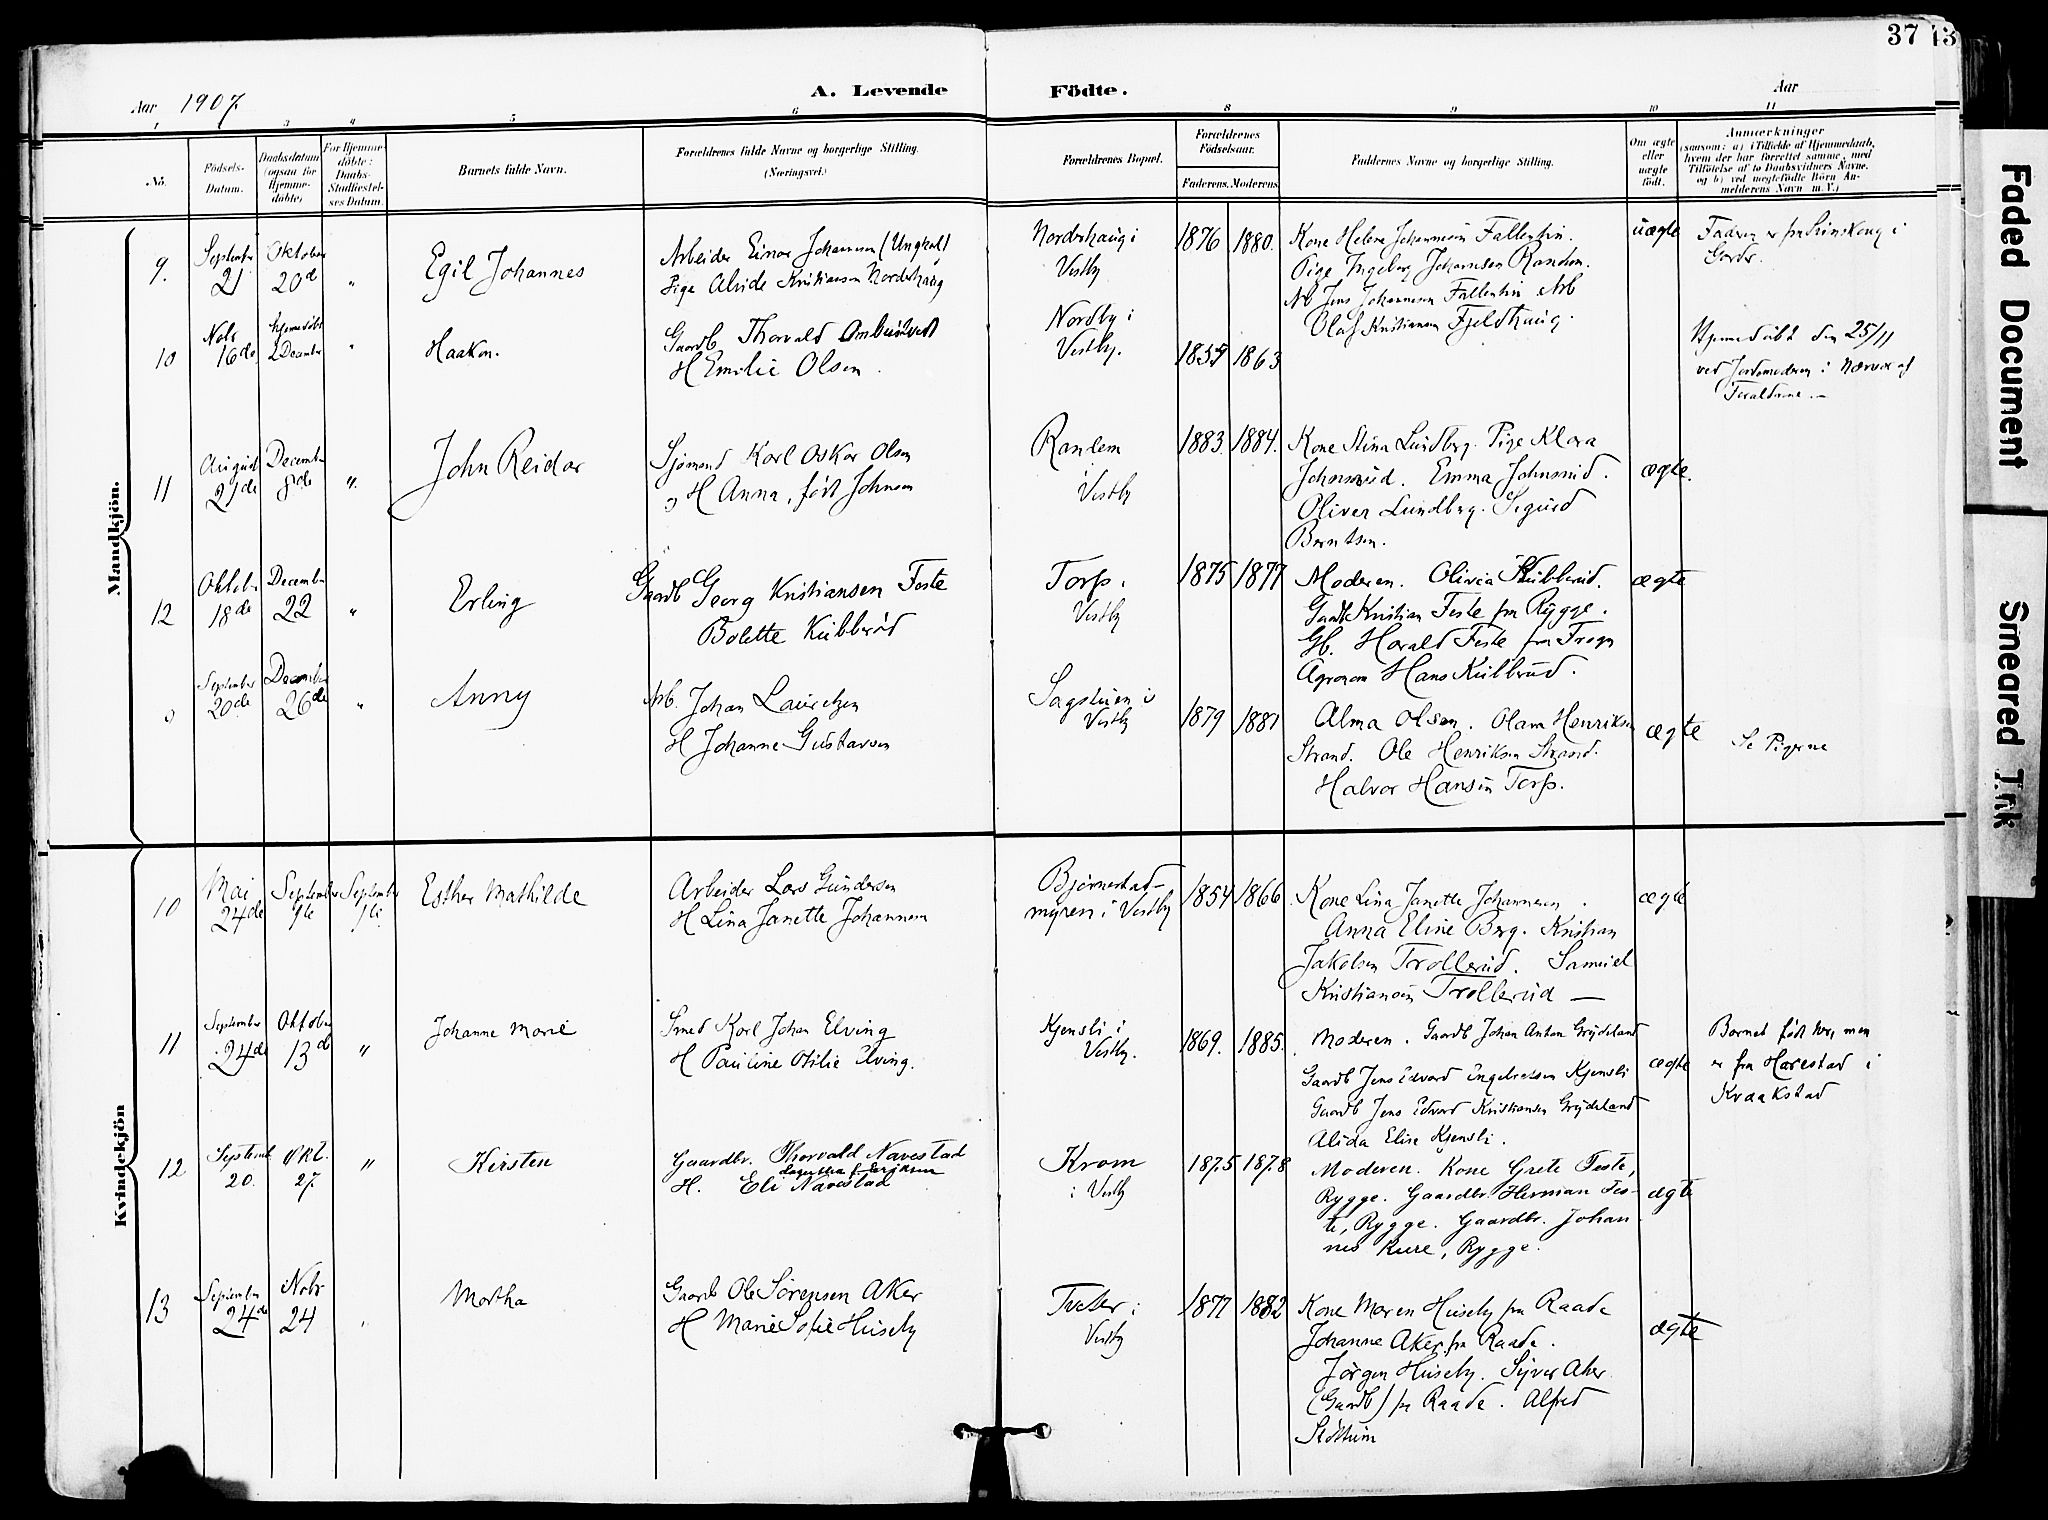 37
Aar 1907.
A. Levende Födte.
Aar
1 3 4 5 6 8 9 10 11
No.
Födsels-Datum.
Daabsdatum (ogsaa for Hjemme-döbte)
For Hjemme-döbte: Daabs-Stadfæstel-ses Datum.
Barnets fulde Navn.
Forældrenes fulde Navne og borgerlige Stilling. (Næringsvei.)
Forældrenes Bopæl.
Forældrenes Födselsaar.
Faderens. Moderens.
Faddernes Navne og borgerlige Stilling.
Om ægte eller uægte födt.
Anmærkninger
(saasom: a) i Tilfælde af Hjemmedaab,
hvem der har forrettet samme, med
Tilföielse af to Daabsvidners Navne.
og b) ved uægtefödte Börn An-
melderens Navn m. V.)
Mandkjön.
9. September 21 Oktober 20d " Egil Johannes
Arbeider Einar Johannesen (Ungkarl)
Pige Alvide Kristiansen Nordshaug
Nordshaug i Vestby
1876 1880.
Kone Helene Johannesen Fallentin.
Pige Ingeborg Johannsen Randem.
Arb Jens Johannesen Fallentin Arb
Olaf Kristiansen Fjeldhaug.
uægte
Faderen er fra i
10 Nobr 16de hjemmedöbt 2 December " Haakon.
Gaardb Thorvald
H Emilie Olsen.
Nordby i Vestby.
1859 1863
Hjemmedöbt den 25/11
ved Jordemoderen i Nærvær af
Forældrene. —
11 August 21de December 8de " John Reidar
Sjömand Karl Oskar Olsen
og H Anna, født Johnsen
Randem i Vestby
1883. 1884.
Kone Stina Lundberg. Pige Klara
Johnsrud. Emma Johnsrud.
Oliver Lundberg. Sigurd
Berntsen.
ægte.
12 Oktober 18de December 22 " Erling
Gaardb Georg Kristiansen Feste
Bolette Kubberöd
Torp i Vestby
1875 1877
Moderen. Olivia Kubberud.
Gaardb Kristian Feste fra Rygge.
Gb. Harald Feste fra Frogn
Agronom Hans Kubberud.
ægte
September 20de December 26de " Anny
Arb. Johan Lauritzen
H Johanne Gustavsen
Sagstuen i Vestby
1879 1881
Alma Olsen. Olava Henriksen
Strand. Ole Henriksen Strand.
Halvor Hansen Torp.
ægte
Se Pigerne
Kvindekjön
10 Mai 24de September 1ste September 1ste Esther Mathilde
Arbeider Lars Gundersen
H Lina Janette Johannesen
Bjørnestad-
myren i Vestby
1854 1866
Kone Lina Janette Johannesen.
Anna Eline Berg. Kristian
Jakobsen Trollerud. Samuel
Kristiansen Trollerud —
ægte
11 September 24de Oktober 13d " Johanne Marie
Smed Karl Johan Elving
H Pauline Otilie Elving.
Kjensli i Vestby.
1869. 1885.
Moderen. Gaardb Johan Anton Gryteland
Gaardb Jens Edvard Ingebretsen Kjensli
Gaardb Jens Edvard Kristiansen Gryteland
Alida Elise Kjensli.
ægte
Barnet født her, men
er fra Harestad i
Kraakstad
12 Septemb 20. Okt. 27. " Kirsten
Gaardbr. Thorvald Navestad
H. Eli Navestad
Krom i Vestby
1875 1878
Moderen. Kone Grete Feste,
Rygge. Gaardbr. Herman Fes-
te, Rygge. Gaardbr. Johan-
nes Kure, Rygge.
ægte
13 September 24de Nobr 24 Martha
Gaardb Ole Sörensen Aker
H Marie Sofie Huseby
Tveter i Vestby
1877 1882
Kone Maren Huseby fra Raade
Johanne Aker fra Raade.
Jörgen Huseby. Syver Aker
(Gaardb) fra Raade. Alfred
ægte
Faded Document
Smeared Ink